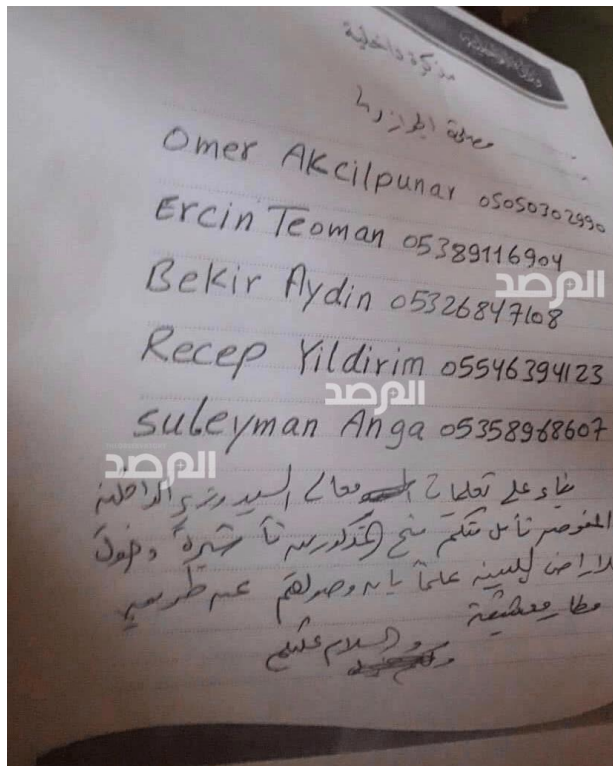 مذكرة داخلية
مصلحة الجوازات
Omer AKcilpunar 05050302990
Ercin Teoman 05389116904
Bekir Aydin 05326847108
المرصد
Recep Yildirim 05546394123
المرصد
Suleyman Anga 05358968607
المرصد
بناء على تعليمات معالي السيد وزير الداخلية
المفوض نأمل منكم منح المذكورين تأشيرة دخول
لاراضي الليبية علماً بان وصولهم عن طريق
مطار معيتيقة
والسلام عليكم